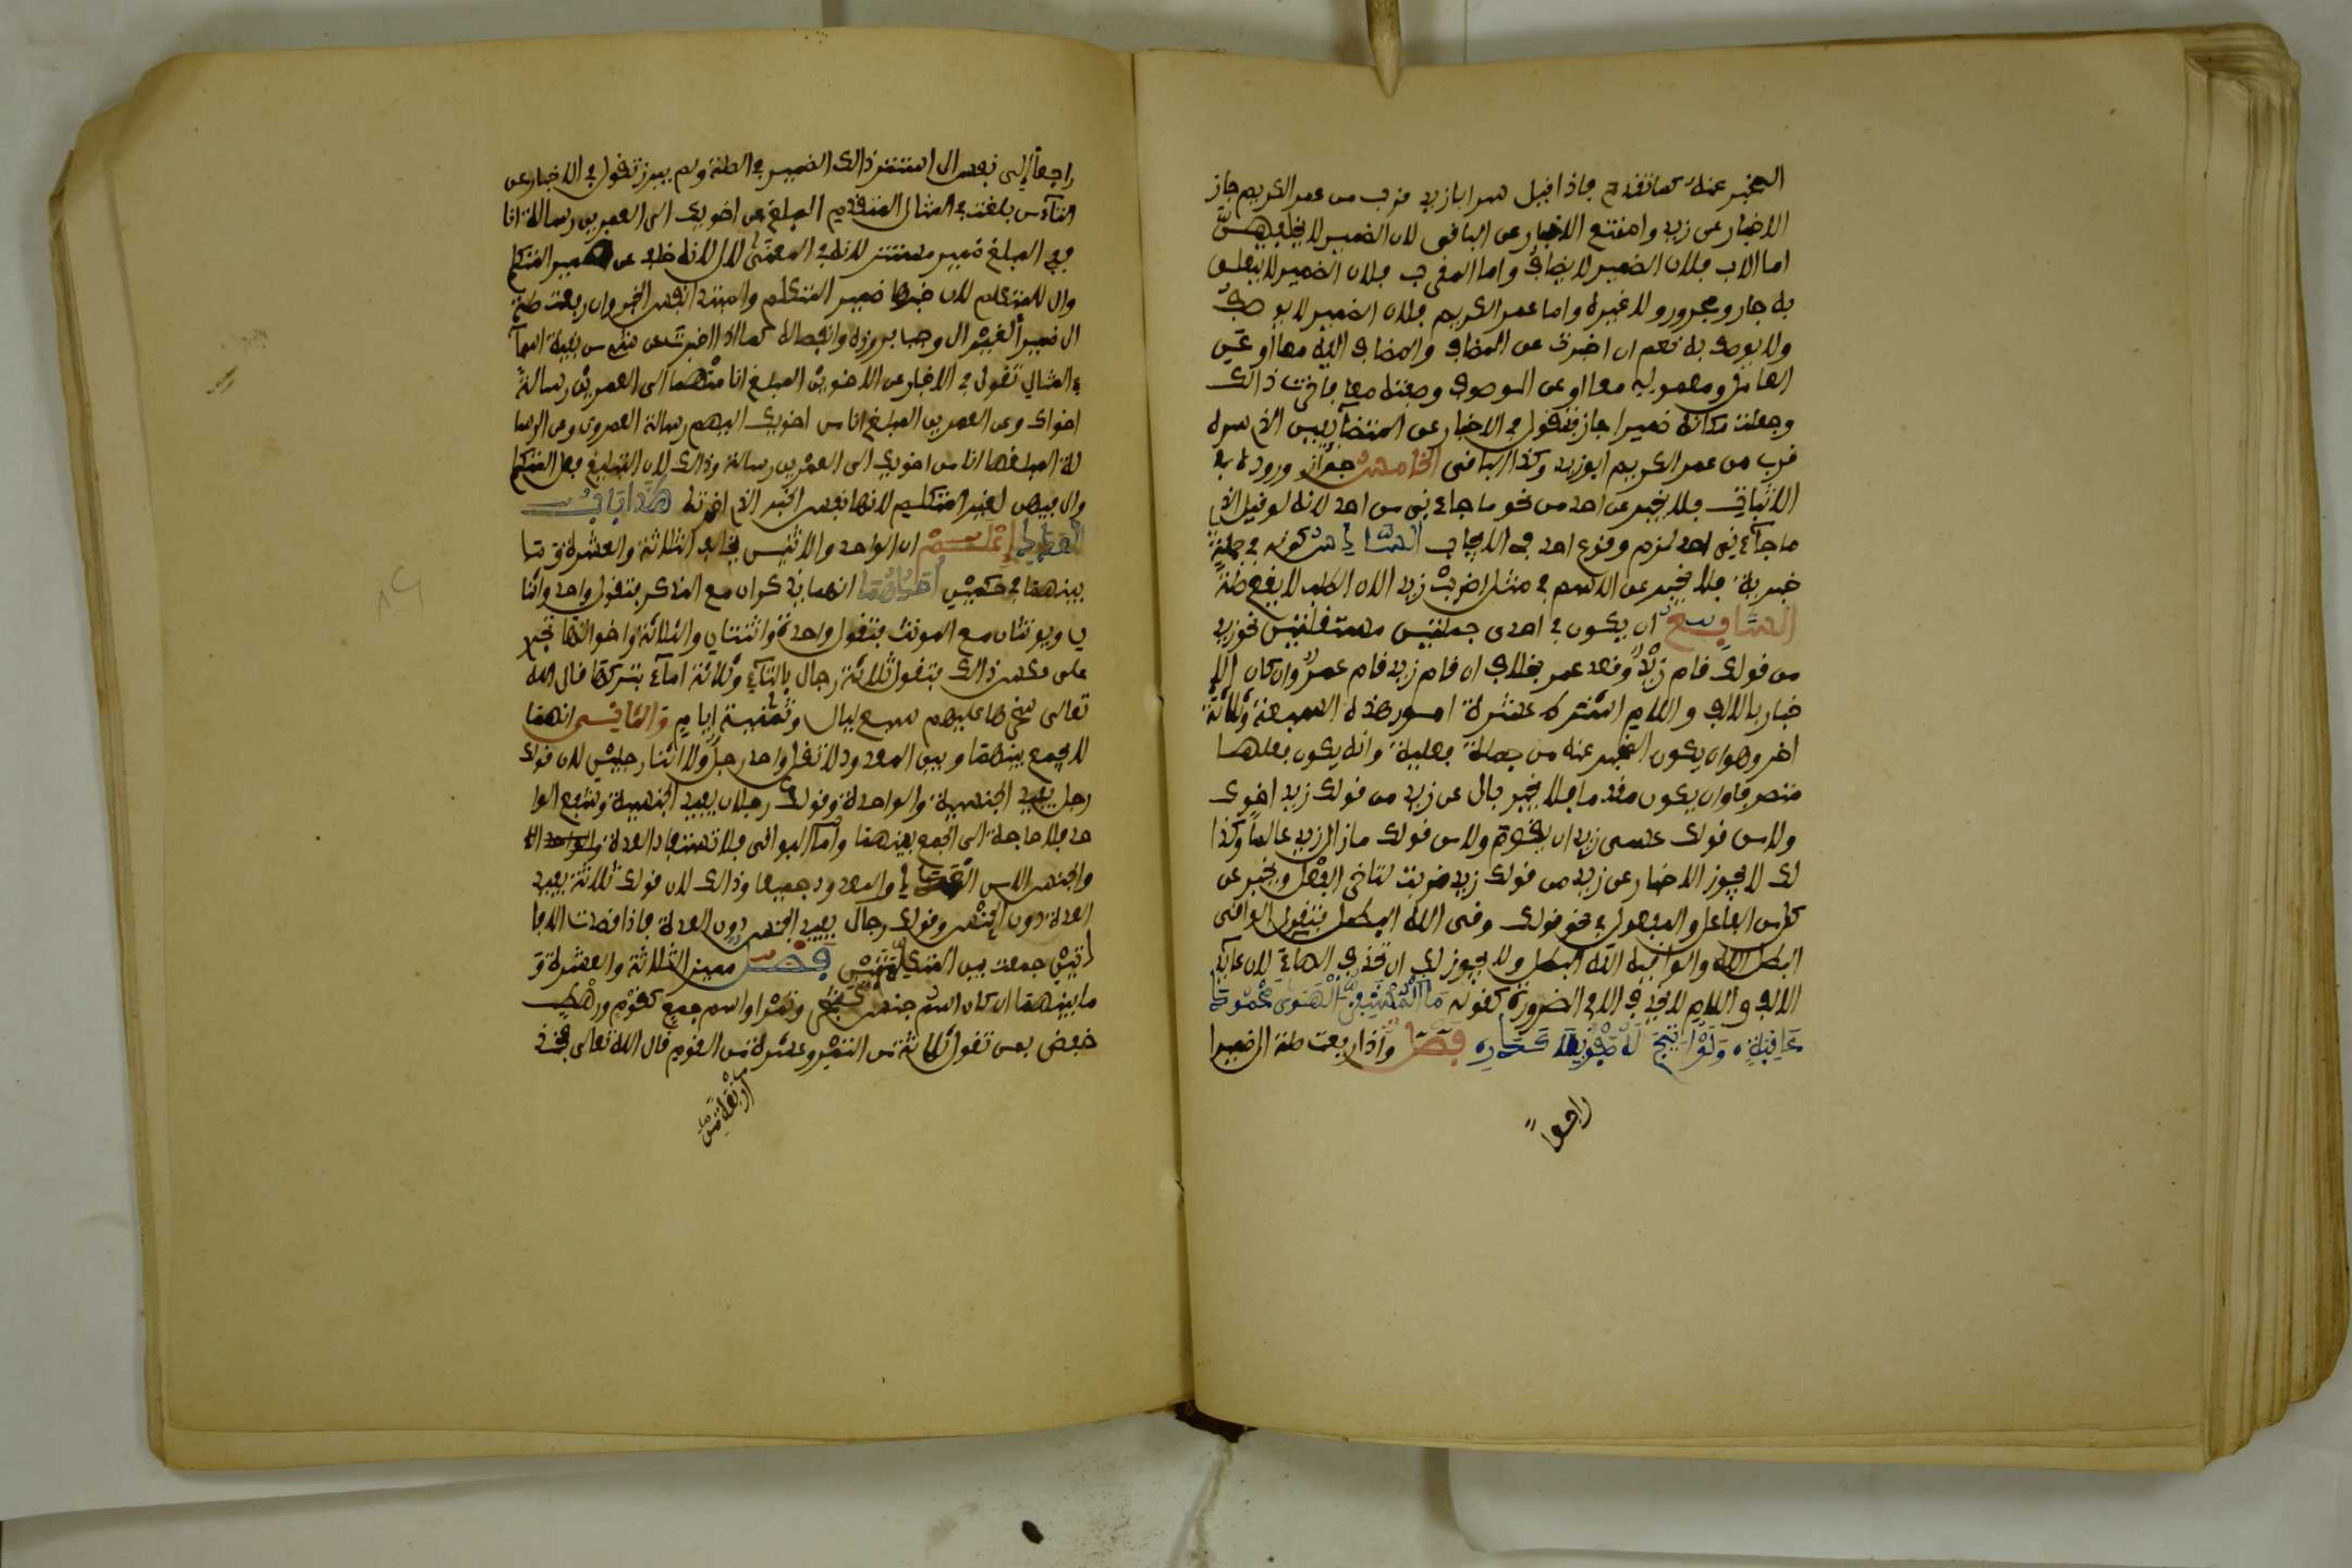 المخبر عنه كما تقدم فاذا قيل سر ابا زيد قرب من عمر الكريم جاز
الاخبار عن زيد وامتنع الاخبار عن الباقى لان الضمير لا يخلفهن
اما الاب فلان الضمير لا يضاف واما القرب فلان الضمير لا يتعلق
به جار ومجرور ولا غيره واما عمر الكريم فلان الضمير لا يوصف
ولا يوصف به نعم ان اخبرت عن المضاف والمضاف اليه معا او عن
العامل ومعموله معا او عن الموصوف وصفته معا فاخرت ذالك
وجعلت مكانه ضميرا جاز فتقول في الاخبار عن المتضايفين الذي سره
قرب من عمر الكريم ابو زيد وكذا الباقى الخامس جواز وروده في
الاثبات فلا يخبر عن احد من نحو ما جاءني من احد لانه لو قيل الذي
ما جآءني احد لزم وقوع احد في الايجاب السادس كونه في جملة
خبرية فلا يخبر عن الاسم في مثل اضرب زيد الان الطلب لا يقع صلة
السابع ان يكون في احدى جملتين مستقلتين نحو زيد
من قولك قام زيد وقعد عمر بخلاف ان قام زيد قام عمر وان كان الا
خبار بالالف واللام اشترط عشرة امور هذه السبعة وثلاثة
اخر وهو ان يكون المخبر عنه من جملة فعلية وانه يكون فعلها
متصرفا وان يكون مقدما فلا يخبر بال عن زيد من قولك زيد اخوك
ولا من قولك عسى زيد ان يقوم ولا من قولك ما زال زيد عالما وكذا
لك لا يجوز الاخبار عن زيد من قولك زيد ضربت لتاخر الفعل ويخبر عن
كل من الفاعل والمفعول في نحو قولك وقى الله البطل فتقول الواقى
البطل الله والواقيه الله البطل ولا يجوز لك ان تحذف الهاء لان عآيد
الالف واللام لا يحذف الا في الضرورة كقوله مَا الْمُسْتَفِزُّ الْهَوَى مَحْمُودَ
عَافِيَةٍ وَلَوْ اُتِيحَ لَهُ صَفْوٌ بِلَا كَدَرِ فصل واذا رفعت صلة ال ضميرا
راجعا
راجعاً إلى نفس ال استتر ذالك الضمير في الصلة ولم يبرز تقول في الاخبار عن
التآء من بلغت في المثال المتقدم المبلغ من اخويك الى العمرين رسالة انا
ففي المبلغ ضمير مستتر لانه في المعنى لال لانه خلف عن ضمير المتكلم
وال للمتكلم لان خبرها ضمير المتكلم والمبتدا نفس الخبر وان رفعت صلة
ال ضميراً لغير ال وجب بروزه وانفصاله كما اذا اخبرت عن شيء من بقية اسمآء
المثال تقول في الاخبار عن الاخوين المبلغ انا منهما الى العمرين رسالة
اخواك وعن العمرين المبلغ انا من اخويك اليهم رسالة العمرون وعن الرسا
لة المبلغها انا من اخويك الى العمرين رسالة وذالك لان التبليغ فعل المتكلم
وال فيهن لغير المتكلم لانها نفس الخبر الذي اخرته هٰذَا بَابُ
العدد اعلم ان الواحد والاثنين يخالف الثلاثة والعشرة وما
بينهما في حكمين احدهما انهما يذكران مع المذكر فتقول واحد واثنا
ن ويونثان مع المونث فتقول واحدة واثنتان والثلاثة واخواتها تجري
على عكس ذالك فتقول ثلاثة رجال بالتآء وثلاث امآء بتركها قال الله
تعالى سخرها عليهم سبع ليال وثمنية ايام وَالثاني انهما
لا يجمع بينهما وبين المعدود لا تقل واحد رجل ولا اثنا رجلين لان قولك
رجل يفيد الجنسية والواحدة وقولك رجلان يفيد الجنسية وشفع الوا
حد فلا حاجة الى الجمع بينهما وأما البواقى فلا تستفاد العدة
والجنس الا من العدد والمعدود جميعا وذالك لان قولك ثلاثة يفيد
العدة دون الجنس وقولك رجال يفيد الجنس دون العدة فاذا قصدت الافا
دتين جمعت بين الكلمتين فصل مميز الثلاثة والعشرة و
ما بينهما ان كان اسم جنس كشجر وتمر او اسم جمع كقوم ورهط
خفض بمن تقول ثلاثة من التمر وعشرة من القوم قال الله تعالى فخذ
أَرْبَعَةً مِّنَ